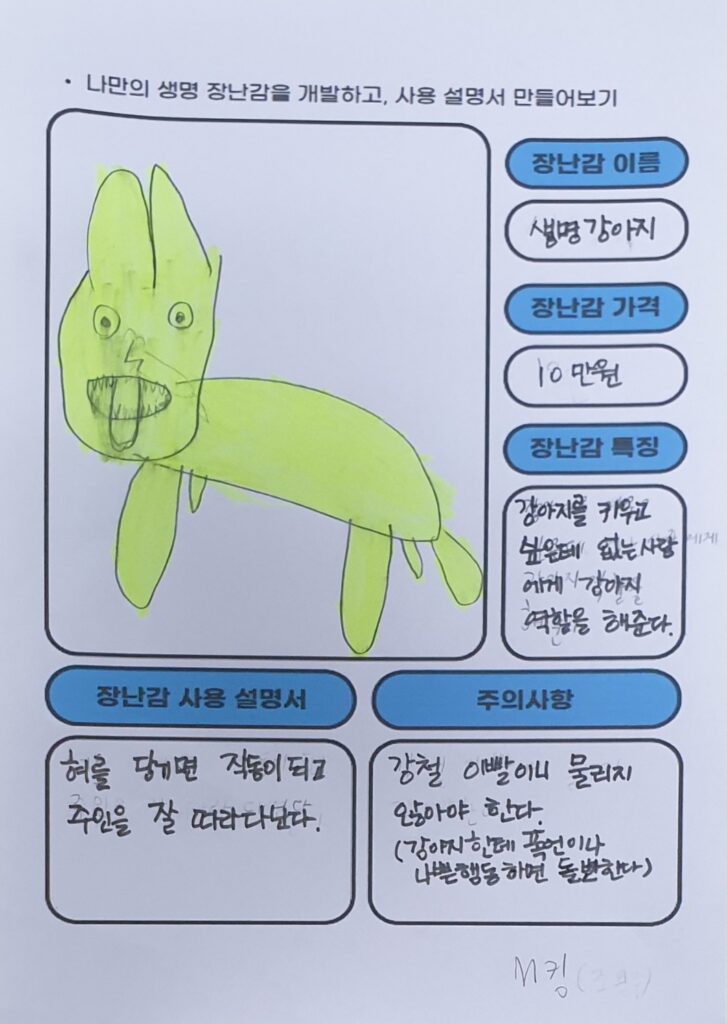 • 나만의 생명 장난감을 개발하고, 사용 설명서 만들어보기
장난감 이름
생명강아지
장난감 가격
10만원
장난감 특징
강아지를 키우고
싶은데 없는사람
에게 강아지
역할을 해준다.
장난감 사용 설명서
혀를 당기면 작동이되고
주인을 잘 따라다닌다.
주의사항
강철 이빨이니 물리지
않아야 한다.
(강아지한테 폭언이나
나쁜행동하면 돌변한다)
M킹